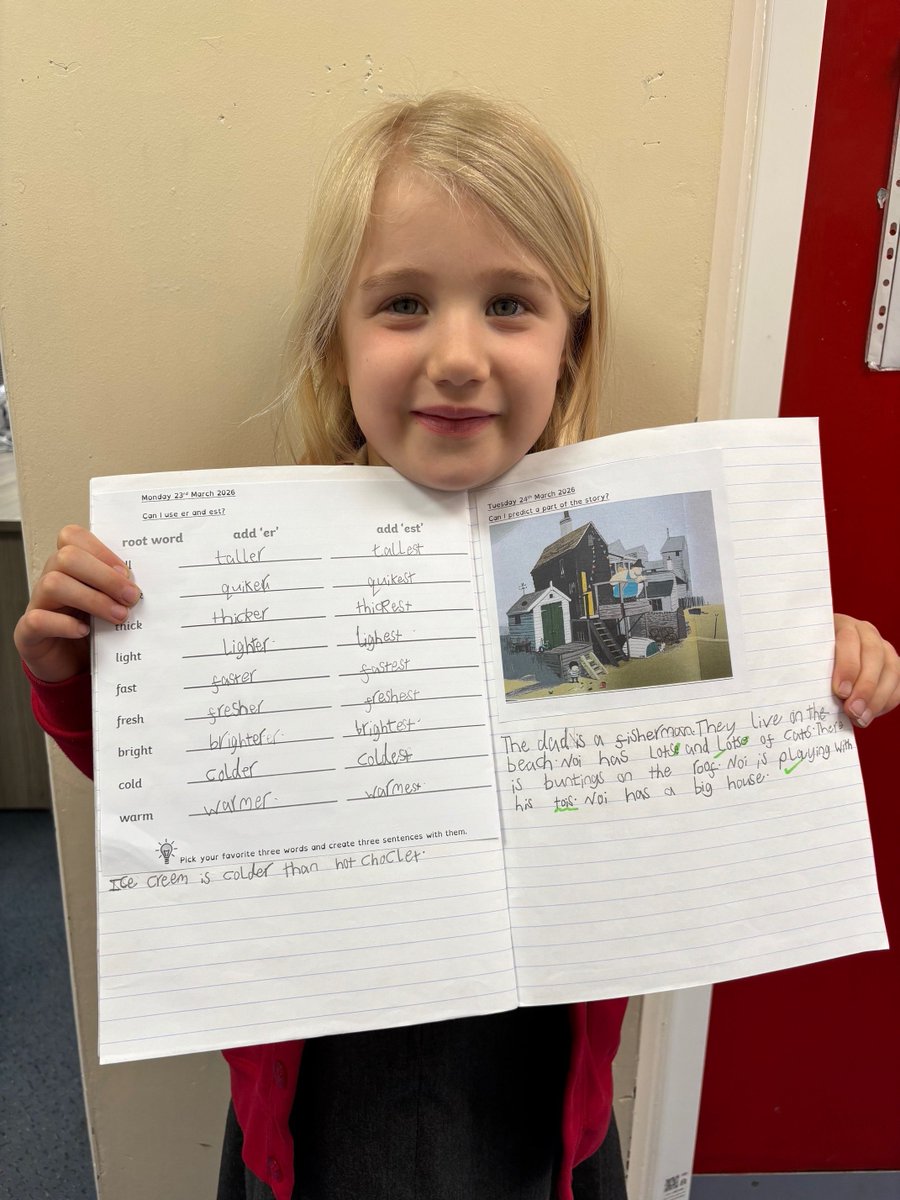 Monday 23rd March 2026
Can I use er and est?
root word add 'er' add 'est'
taller tallest
quiker quikest
thick thicker thickest
light lighter lighest
fast faster fastest
fresh fresher freshest
bright brighterer brightest.
cold colder coldest
warm warmer. warmest
Pick your favorite three words and create three sentences with them.
Ice creem is colder than hot choclet.
Tuesday 24th March 2026
Can I predict a part of the story?
The dad is a fisherman. They live on the
beach. Noi has lots and lots of cats. There
is buntings on the roof. Noi is playing with
his tois. Noi has a big house.